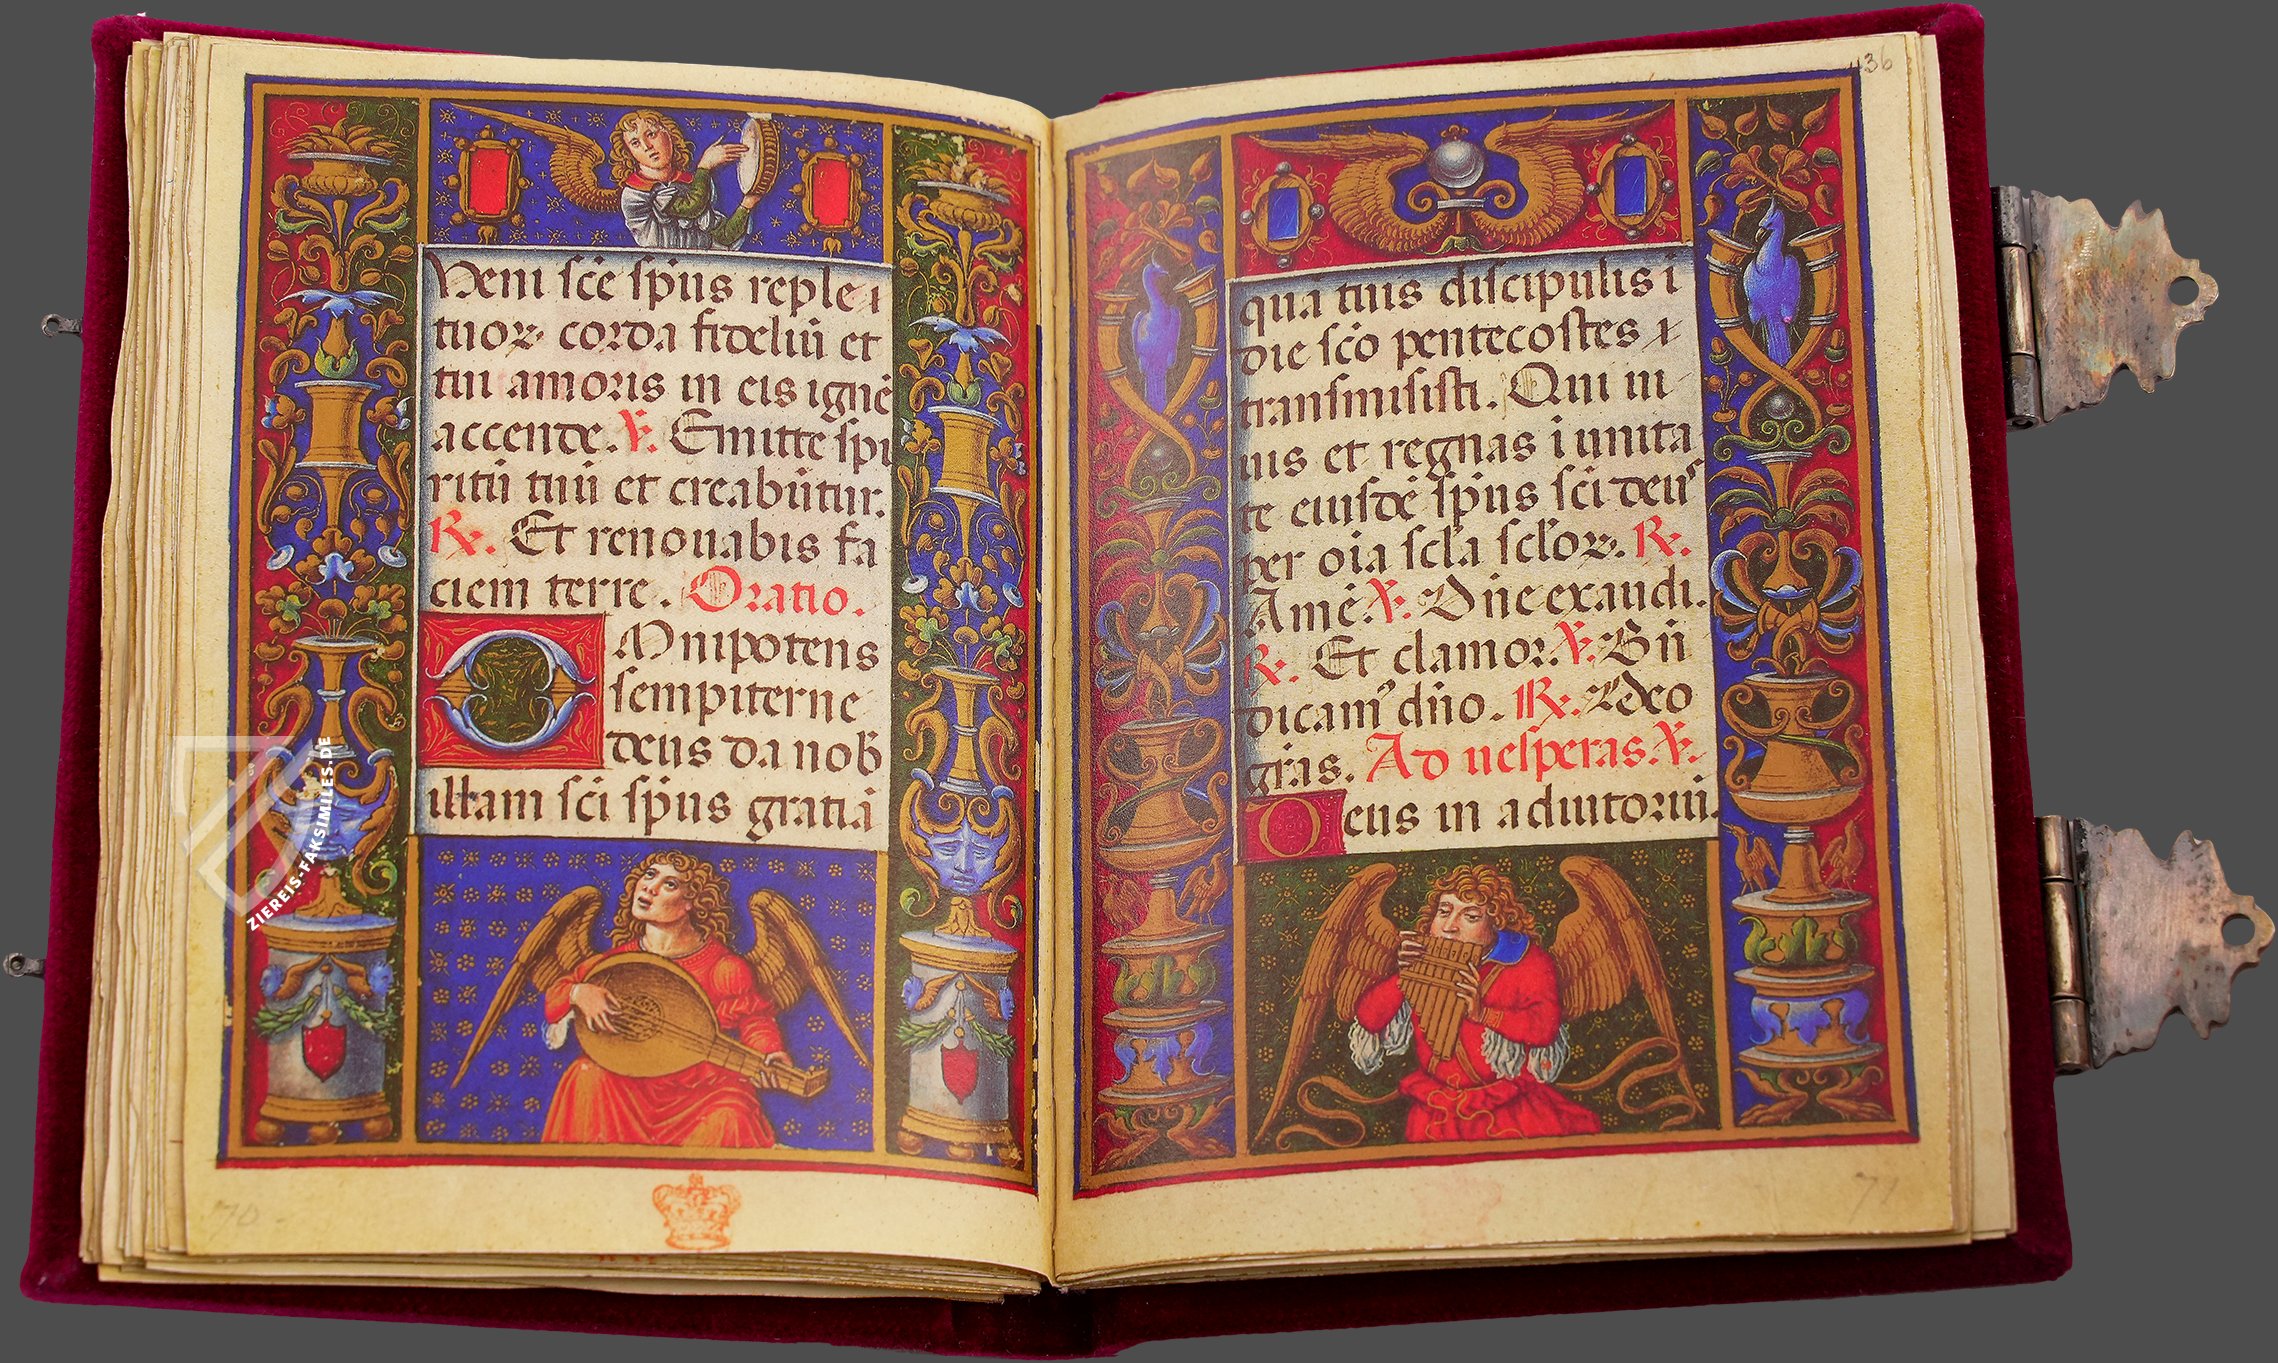 Veni sc̄e sp̄us reple i
tuoꝝ corda fideliū et
tui amoris in eis ignē
accende. ℣. Emitte spi
ritū tuū et creabūtur.
℟. Et renouabis fa
ciem terre. Oratio.
OMnipotens
sempiterne
deus da nob̄
illam sc̄i sp̄us gratiā
qua tuis discipulis i
die sc̄o pentecostes
transmisisti. Qui ui
uis et regnas i unita
te eiusdē sp̄us sc̄i deus
per oīa scl̄a scl̄oꝝ. ℟.
Amē. ℣. Dn̄e exaudi.
℟. Et clamor. ℣. Bn̄
dicam⁹ dn̄o. ℟. Deo
gr̄as. Ad uesperas. ℣.
Deus in adiutoriū.
136
70
71
ZIEREIS-FAKSIMILES.DE